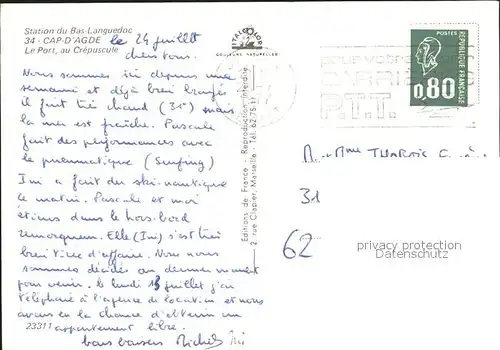 Station du Bas-Languedoc
34 - CAP-D'AGDE
Le Port, au Crépuscule
le 24 juillet
chers tous.
Nous sommes ici depuis une
semaine et déjà bien bronzés
il fait très chaud (31°) mais
la mer est fraîche. Pascale
fait des performances avec
le pneumatique (Surfing)
Ini a fait du ski-nautique
ce matin. Pascale et moi
étions dans le hors-bord
remorqueur. Elle (Ini) s'est très
bien tirée d'affaire. Nous nous
sommes décidés au dernier moment
pour venir. le lundi 15 juillet j'ai
téléphoné à l'agence de location et nous
avons eu la chance d'obtenir un
appartement libre.
bons baisers Michel Ini
23311
COULEURS NATURELLES
Editions de France - Reproduction interdite
2, rue Clapier, Marseille - Tél. 62-75-11
pour votre
CARRIÈRE
P.T.T.
POSTES
0,80
REPUBLIQUE FRANÇAISE
Mr et Mme
31
62
privacy protection
Datenschutz